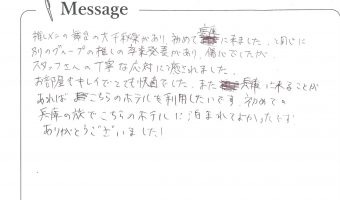 Message
推しメンの舞台の大千秋楽があり、初めて兵庫に来ました。と同じに
別のグループの推しの卒業発表があり、傷心でしたが
スタッフさんの丁寧な応対に癒されました。
お部屋もキレイでとても快適でした。また兵庫に来ることが
あればこちらのホテルを利用したいです。初めての
兵庫の旅でこちらのホテルに泊まれてよかったです
ありがとうございました！